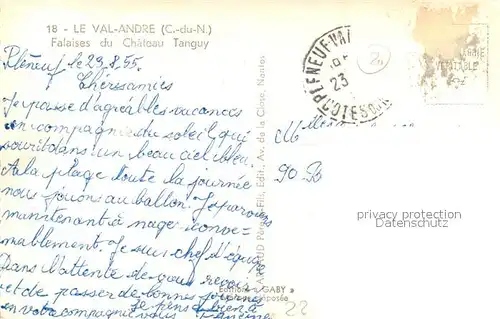 18 - LE VAL-ANDRE (C.-du-N.)
Falaises du Château Tanguy
Pléneuf le 23.8.55.
Chères amies
Je passe d'agréables vacances
en compagnie du soleil qui
sourit dans un beau ciel bleu.
A la plage toute la journée
nous jouons au ballon. Je parviens
maintenant à nager conve-
nablement. Je suis chef d'équipe
Dans l'attente de vous revoir
et de passer de bonnes
en votre compagnie
je pense bien à
vous
ARTAUD Père et Fils, Edit., Av. de la Close, Nantes
Edition « GABY »
déposée
PLENEUF-VAL
23
COTES DU
VERITABLE
M
90 B
22
privacy protection
Datenschutz